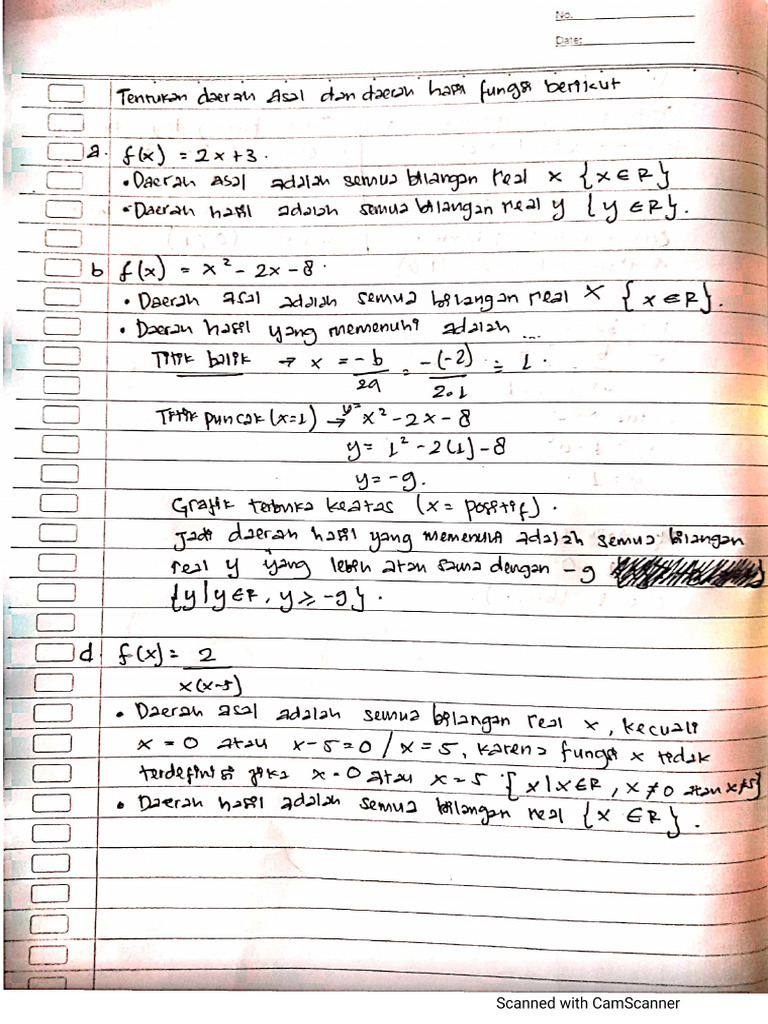 No.
Date:
Tentukan daerah asal dan daerah hasil fungsi berikut
a. f(x) = 2x+3.
• Daerah asal adalah semua bilangan real x {x ∈ R}
• Daerah hasil adalah semua bilangan real y {y ∈ R}.
b f(x) = x² - 2x - 8.
• Daerah asal adalah semua bilangan real x {x ∈ R}.
• Daerah hasil yang memenuhi adalah ...
Titik balik → x = -b/2a = -(-2)/2.1 = 1.
Titik puncak (x=1) → y= x² - 2x - 8
y = 1² - 2(1) - 8
y = -9.
Grafik terbuka keatas (x = positif).
Jadi daerah hasil yang memenuhi adalah semua bilangan
real y yang lebih atau sama dengan -9
{y | y ∈ R, y ≥ -9}.
d f(x) = 2/x(x-5)
• Daerah asal adalah semua bilangan real x, kecuali
x = 0 atau x-5 = 0 / x = 5, karena fungsi x tidak
terdefinisi jika x = 0 atau x = 5 {x | x ∈ R, x ≠ 0 atau x ≠ 5}
• Daerah hasil adalah semua bilangan real {x ∈ R}.
Scanned with CamScanner